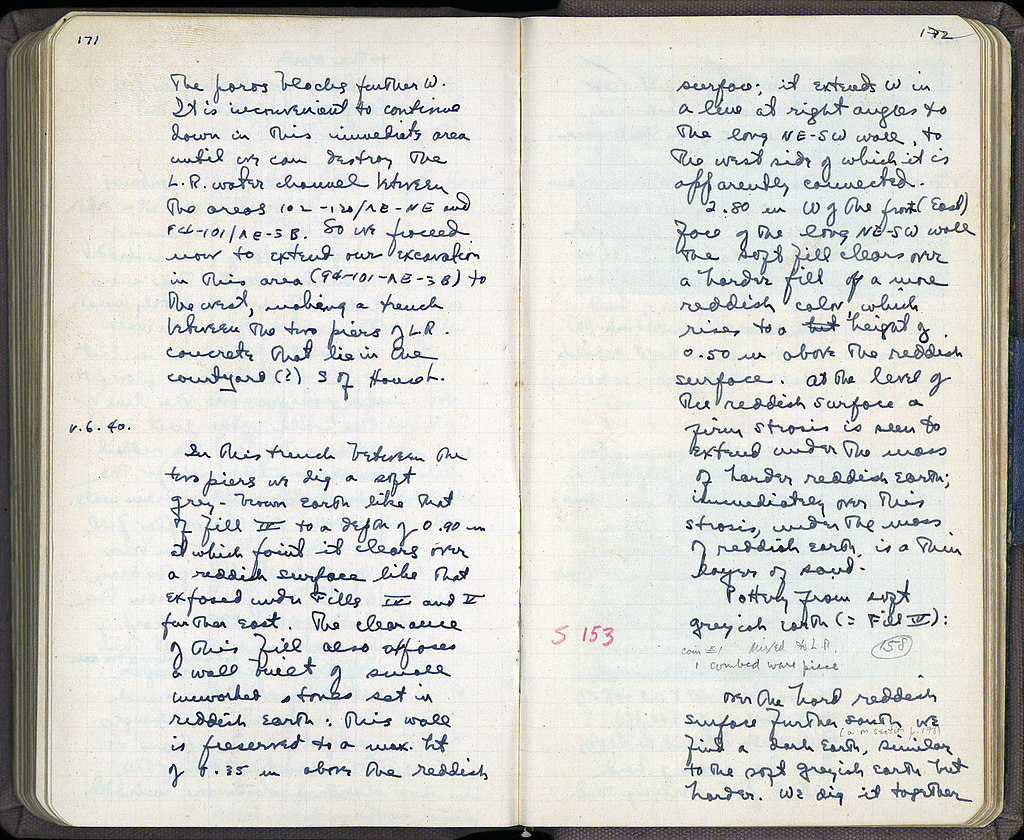 171
The poros blocks further W.
It is inconvenient to continue
down in this immediate area
until we can destroy the
L.R. water channel between
the areas 102-120/ΛΕ-ΝΕ and
-101/ΛΕ-ΞΒ. So we proceed
now to extend our excavation
in this area (94-101-ΛΕ-ΞΒ) to
the west, making a trench
between the two piers of L.R.
concrete that lie in the
courtyard (?) S of House L.
V.6.40.
In this trench between the
two piers we dig a soft
grey-brown earth like that
of Fill IV to a depth of 0.90 m
at which point it clears over
a reddish surface like that
exposed under Fills IV and V
further east. The clearance
of this fill also exposes
a wall built of small
unworked stones set in
reddish earth: this wall
is preserved to a max. ht
of 0.35 m above the reddish
172
surface; it extends W in
a line at right angles to
the long NE-SW wall, to
the west side of which it is
apparently connected.
2.80 m W of the front (East)
face of the long NE-SW wall
the soft fill clears over
a harder fill of a more
reddish color, which
rises to a hit height of
0.50 m above the reddish
surface. At the level of
the reddish surface a
firm strosis is seen to
extend under the mass
of harder reddish earth;
immediately over this
strosis, under the mass
of reddish earth, is a thin
layer of sand.
Pottery from soft
greyish earth (= Fill IV):
S 153
coin #1 mixed to L.R. 158
1 combed ware piece
Over the hard reddish
surface further south we
(a m section p. 198)
find a dark earth, similar
to the soft greyish earth but
harder. We dig it together